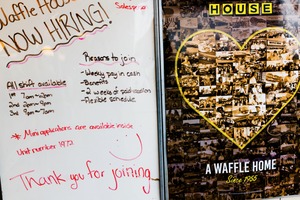 Waffle House
NOW HIRING!
Sales pro
Reasons to join
- Weekly pay in cash
- Benefits
- 2 weeks of paid vacation
- Flexible schedule
All shift available
1st 7am - 2pm
2nd 2pm - 9pm
3rd 9pm - 7am
* Mini applications are available inside
Unit number 1973
Thank you for joining
HOUSE
A WAFFLE HOME
Since 1955